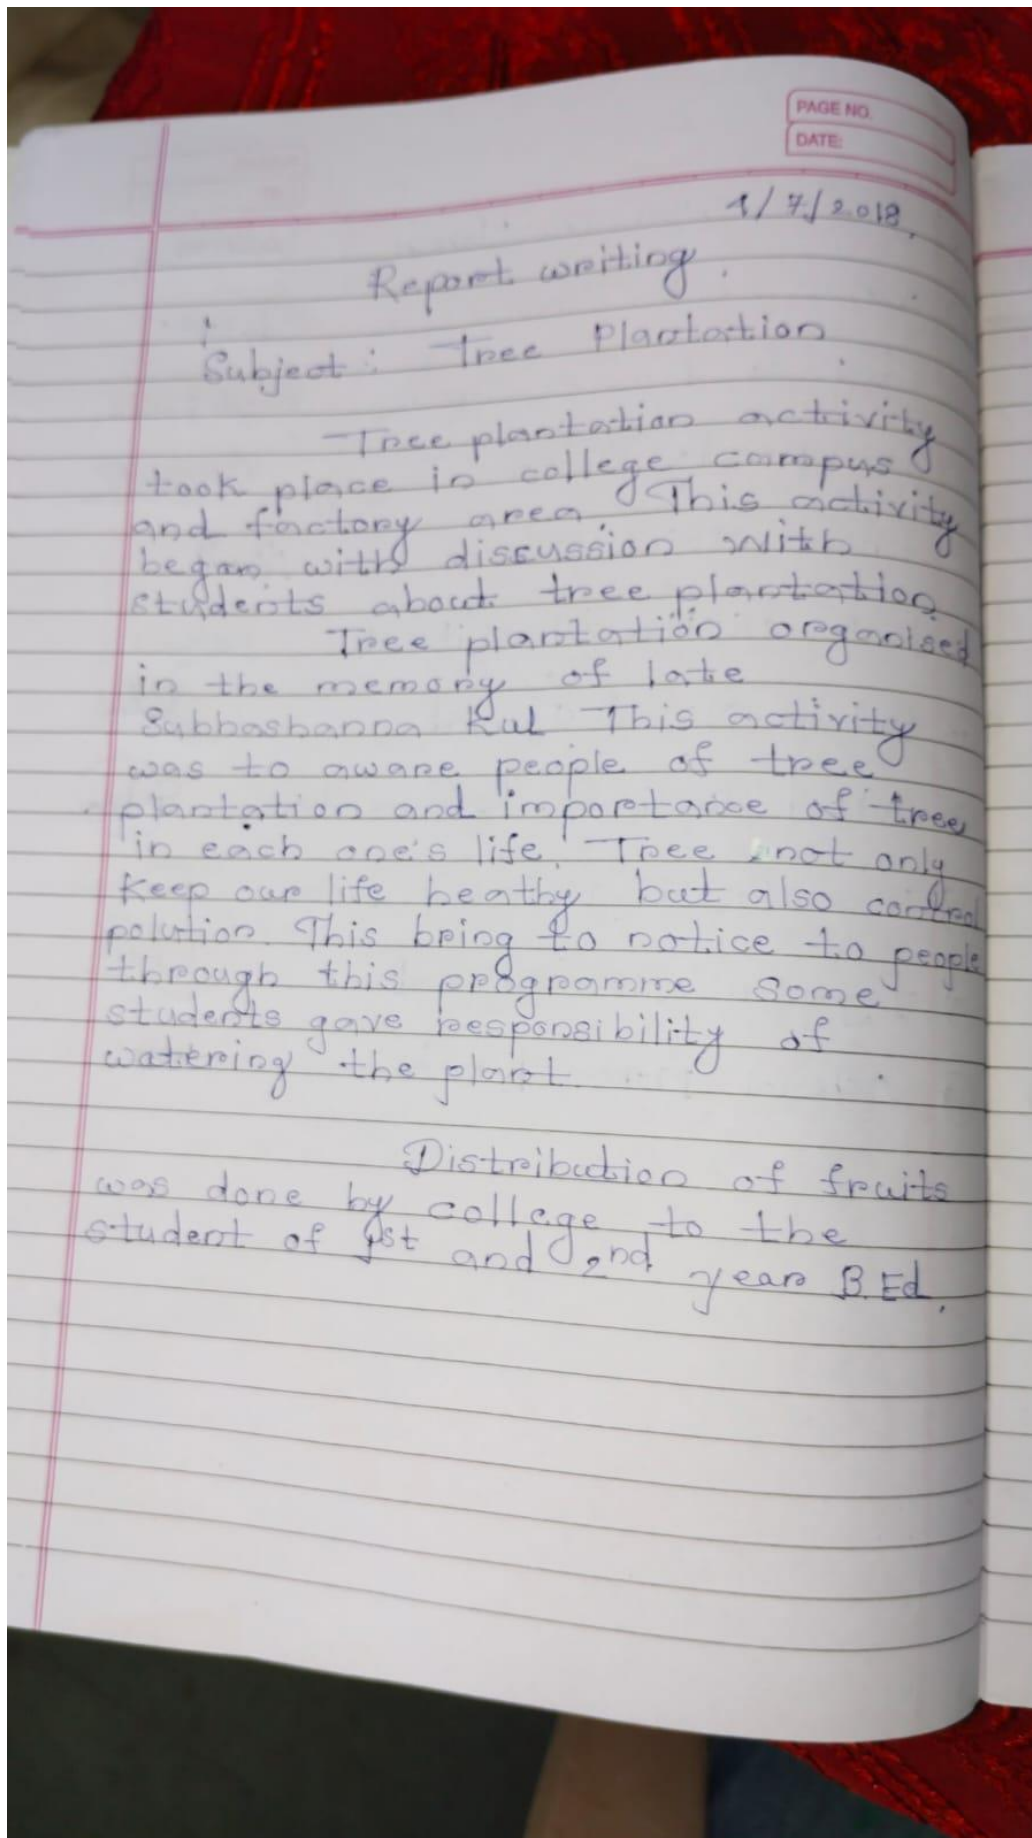 PAGE NO.
DATE:
1/7/2018
Report writing.
Subject: Tree Plantation
Tree plantation activity
took place in college campus
and factory area. This activity
began with discussion with
students about tree plantation.
Tree plantation organised
in the memory of late
Subhashanna Kul This activity
was to aware people of tree
plantation and importance of tree
in each one's life. Tree not only
keep our life heathy but also control
polution. This bring to notice to people
through this programme some
students gave responsibility of
watering the plant.
Distribution of fruits
was done by college to the
student of 1st and 2nd year B.Ed.